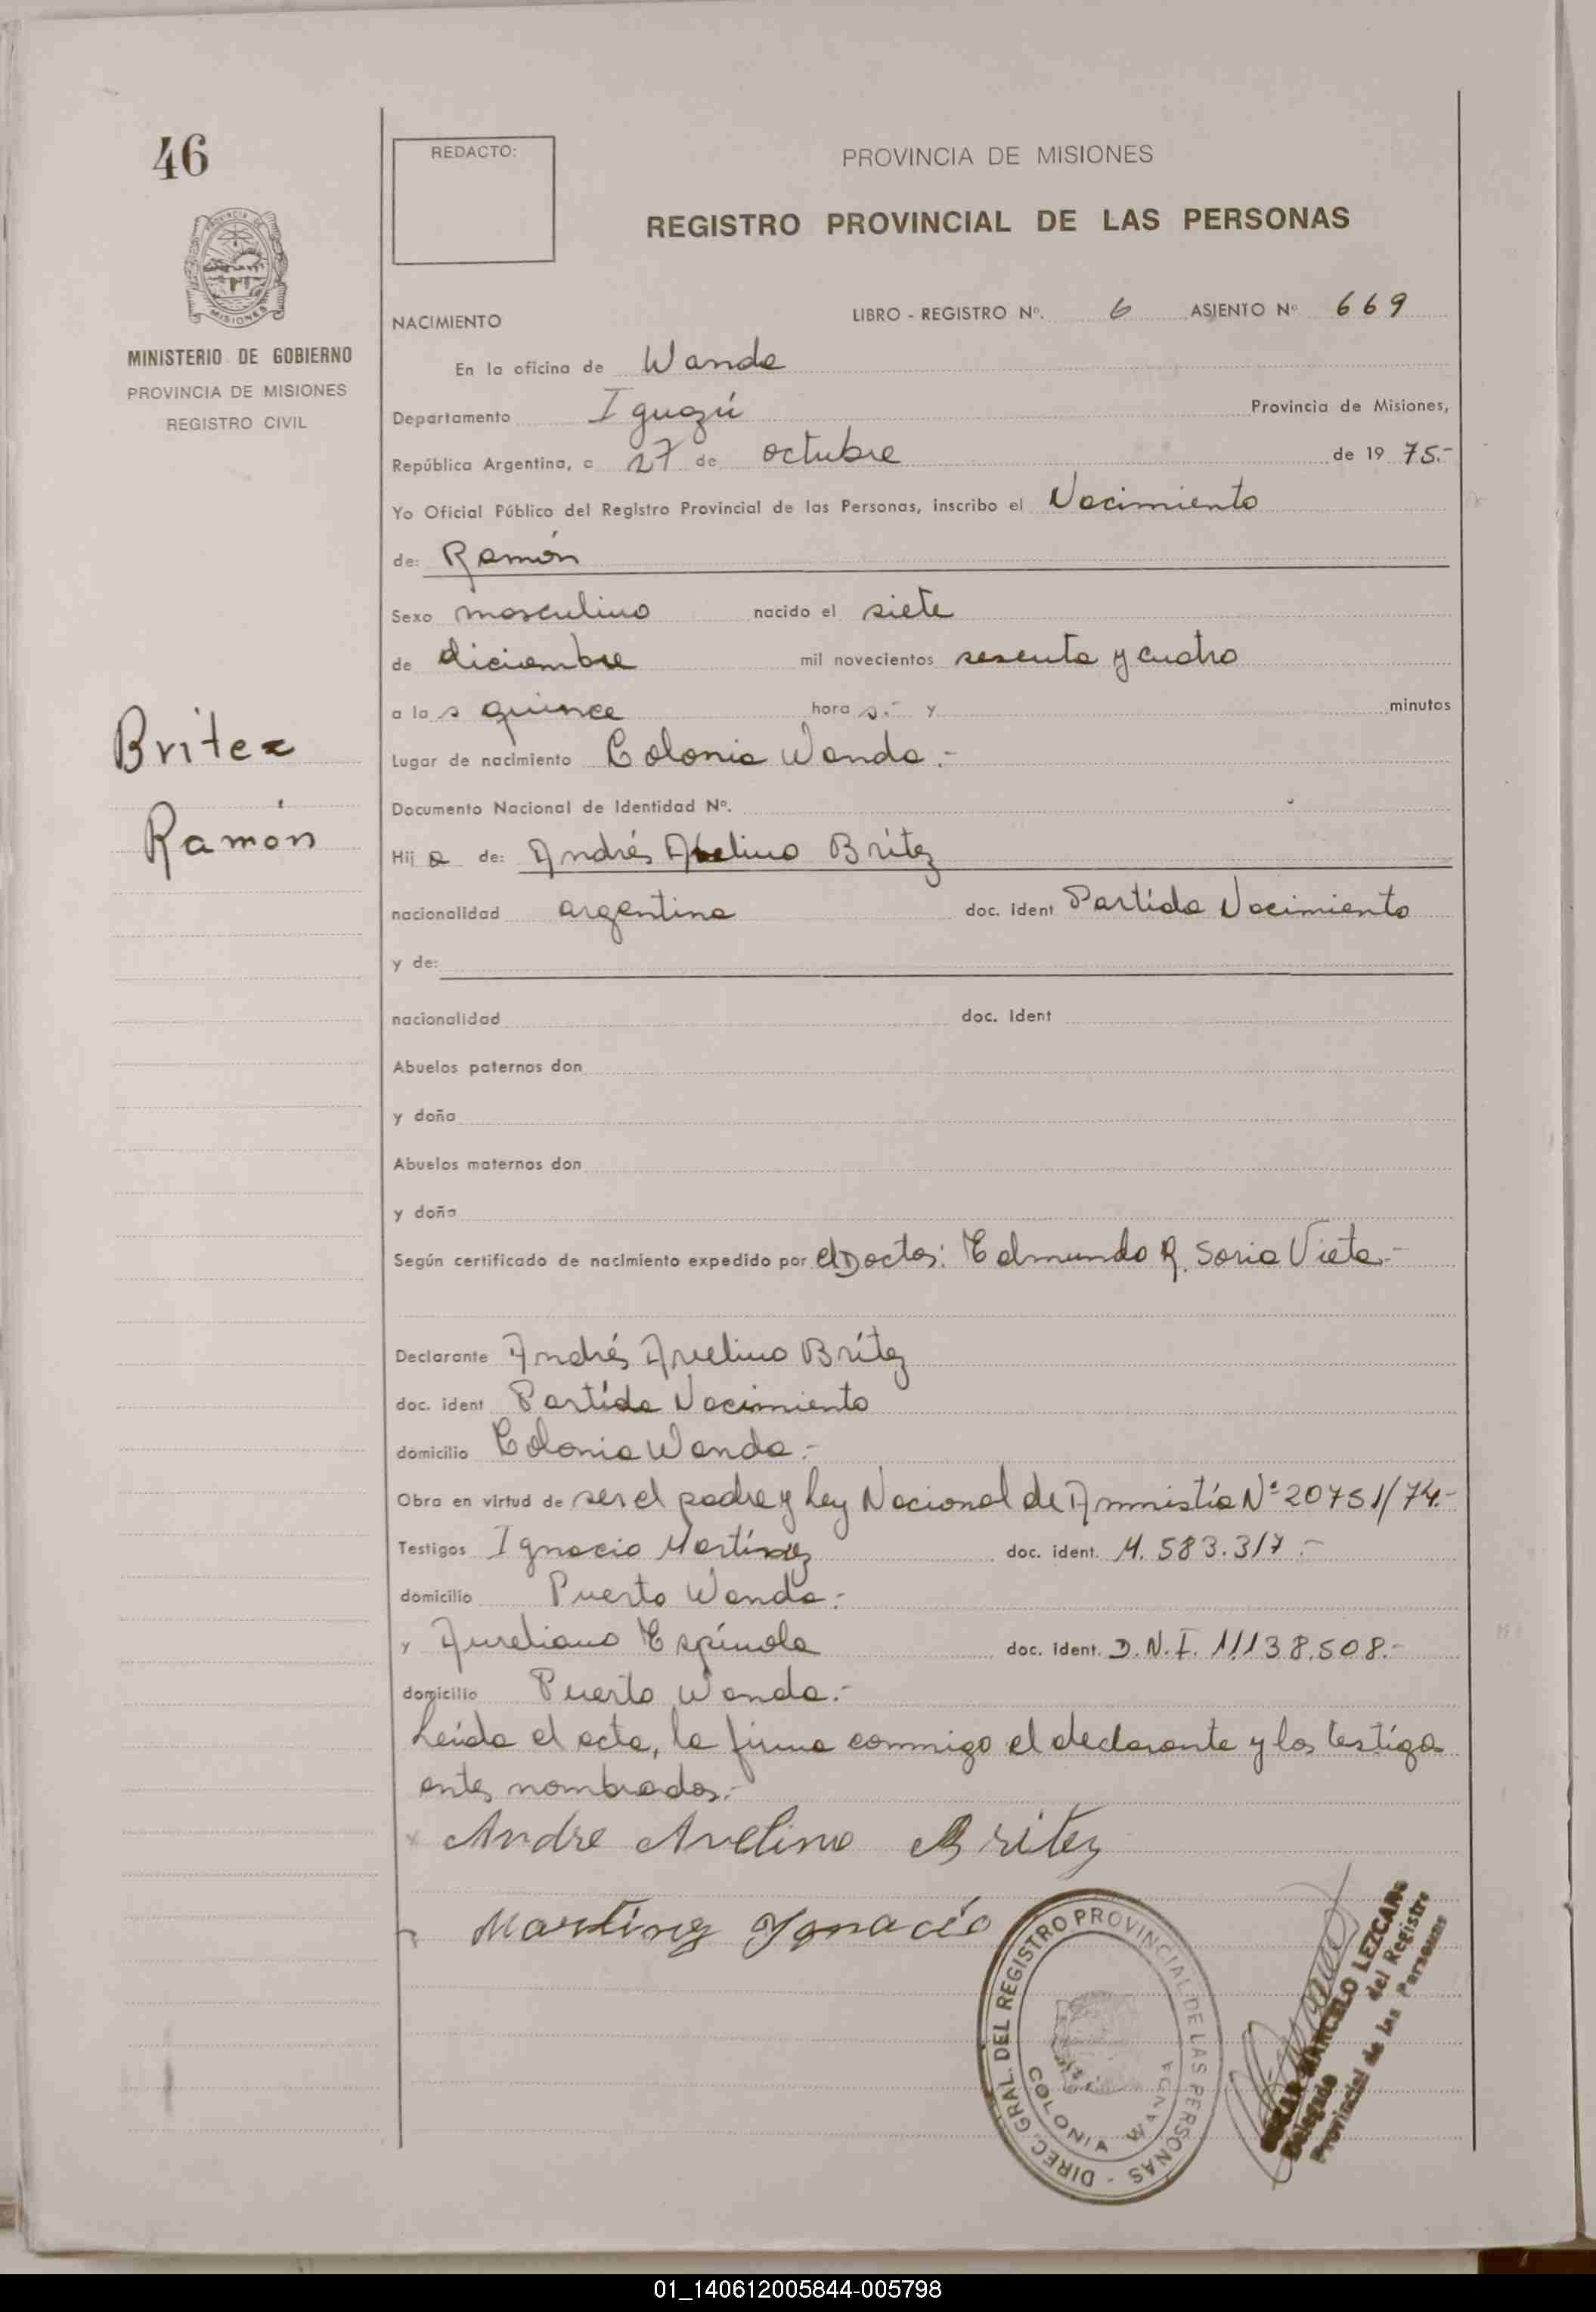 46
REDACTO:
PROVINCIA DE MISIONES
REGISTRO PROVINCIAL DE LAS PERSONAS
PROVINCIA DE
MISIONES
MINISTERIO DE GOBIERNO
PROVINCIA DE MISIONES
REGISTRO CIVIL
NACIMIENTO LIBRO - REGISTRO Nº. 6 ASIENTO Nº 669
En la oficina de Wanda
Departamento Iguazú Provincia de Misiones,
República Argentina, a 27 de octubre de 19 75.-
Yo Oficial Público del Registro Provincial de las Personas, inscribo el Nacimiento
de: Ramón
Sexo masculino nacido el siete
de diciembre mil novecientos sesenta y cuatro
a la s quince hora s.- y minutos
Lugar de nacimiento Colonia Wanda.-
Documento Nacional de Identidad Nº.
Hij o de: Andrés Avelino Brítez
nacionalidad argentina doc. ident Partida Nacimiento
y de:
nacionalidad doc. ident
Abuelos paternos don
y doña
Abuelos maternos don
y doña
Según certificado de nacimiento expedido por el Doctor: Edmundo R. Soria Vieta.-
Declarante Andrés Avelino Brítez
doc. ident Partida Nacimiento
domicilio Colonia Wanda.-
Obra en virtud de ser el padre y Ley Nacional de Amnistía Nº 20751/74.-
Testigos Ignacio Martínez doc. ident. M. 583.317.-
domicilio Puerto Wanda.-
y Aureliano Espínola doc. ident. D.N.I. 11.138.508.-
domicilio Puerto Wanda.-
Leída el acta, la firma conmigo el declarante y los testigos
antes nombrados.-
Andre Avelino Britez
Martinez Ignacio
Britez
Ramón
DIREC. GRAL. DEL REGISTRO PROVINCIAL DE LAS PERSONAS -
COLONIA WANDA
MARCELO LEZCANO
Delegado del Registro
Provincial de las Personas
01_140612005844-005798